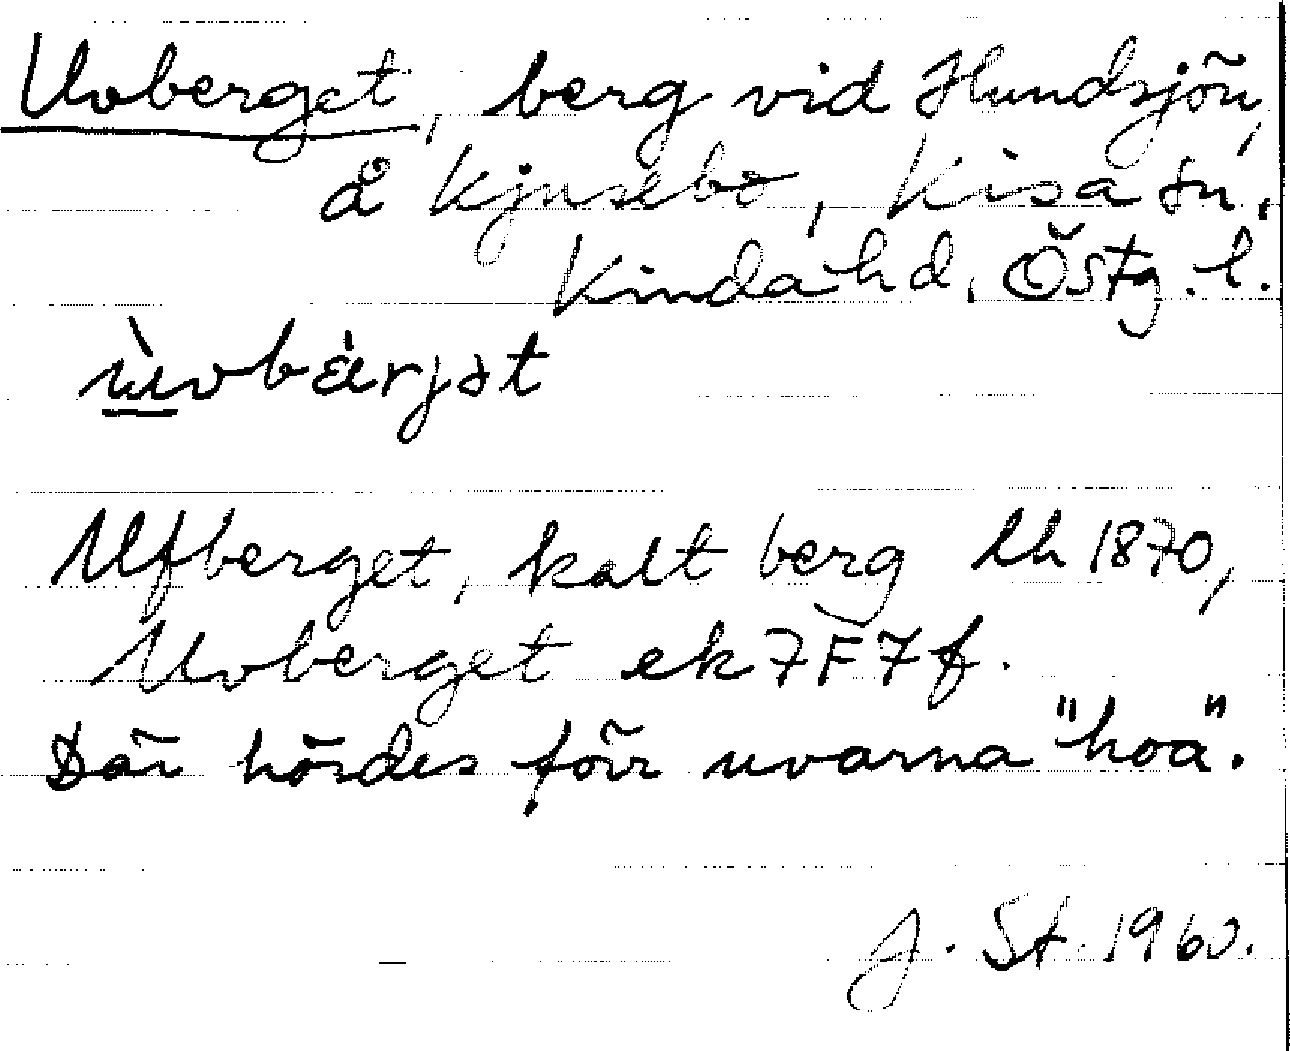 Uvberget, berg vid Hundsjön,
å Kjusebo, Kisa sn.
Kinda hd. Östg. l.
ùvbärjət
Ufberget, kalt berg Lh 1870,
Uvberget ek 7F7f.
Där hördes förr uvarna "hoa".
J. St. 1960.